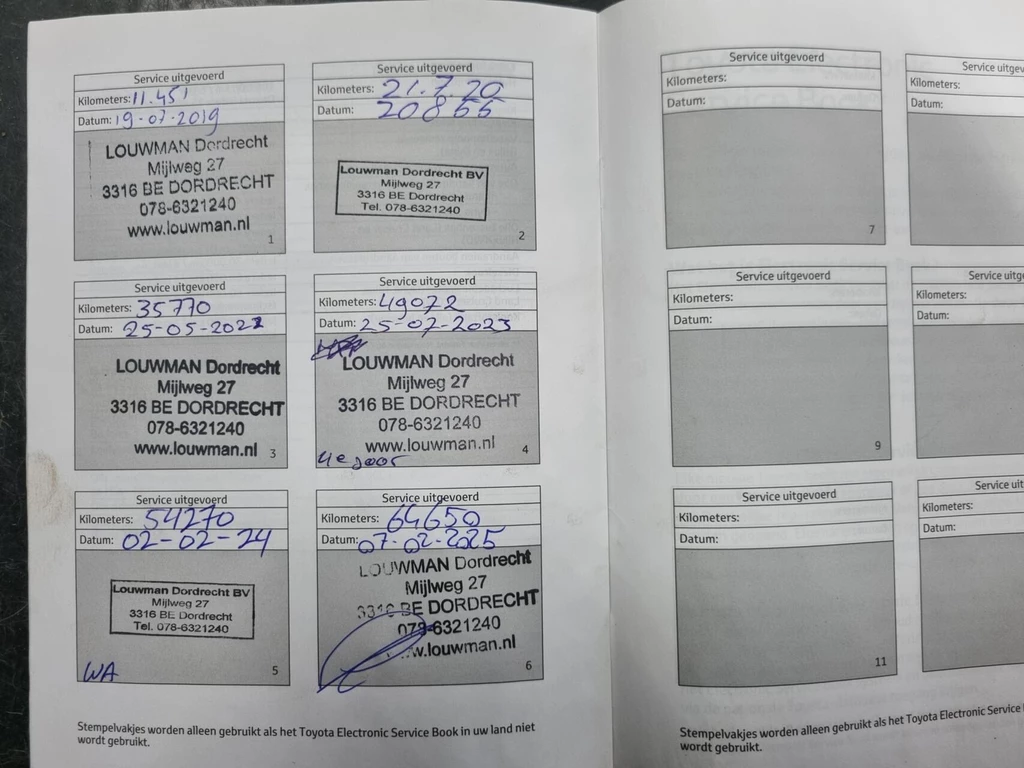 Service uitgevoerd
Kilometers: 11.451
Datum: 19-07-2019
LOUWMAN Dordrecht
Mijlweg 27
3316 BE DORDRECHT
078-6321240
www.louwman.nl
1
Service uitgevoerd
Kilometers: 21.7.20
Datum: 20866
Louwman Dordrecht BV
Mijlweg 27
3316 BE Dordrecht
Tel. 078-6321240
2
Service uitgevoerd
Kilometers: 35770
Datum: 25-05-2022
LOUWMAN Dordrecht
Mijlweg 27
3316 BE DORDRECHT
078-6321240
www.louwman.nl
3
Service uitgevoerd
Kilometers: 49072
Datum: 25-07-2023
LOUWMAN Dordrecht
Mijlweg 27
3316 BE DORDRECHT
078-6321240
www.louwman.nl
4
Service uitgevoerd
Kilometers: 54270
Datum: 02-02-24
Louwman Dordrecht BV
Mijlweg 27
3316 BE Dordrecht
Tel. 078-6321240
WA
5
Service uitgevoerd
Kilometers: 64650
Datum: 07-02-2025
LOUWMAN Dordrecht
Mijlweg 27
3316 BE DORDRECHT
078-6321240
w.louwman.nl
6
Stempelvakjes worden alleen gebruikt als het Toyota Electronic Service Book in uw land niet
wordt gebruikt.
Service uitgevoerd
Kilometers:
Datum:
7
Service uitgev
Kilometers:
Datum:
Service uitgevoerd
Kilometers:
Datum:
9
Service uitg
Kilometers:
Datum:
Service uitgevoerd
Kilometers:
Datum:
11
Service uit
Kilometers:
Datum:
Stempelvakjes worden alleen gebruikt als het Toyota Electronic Service
wordt gebruikt.